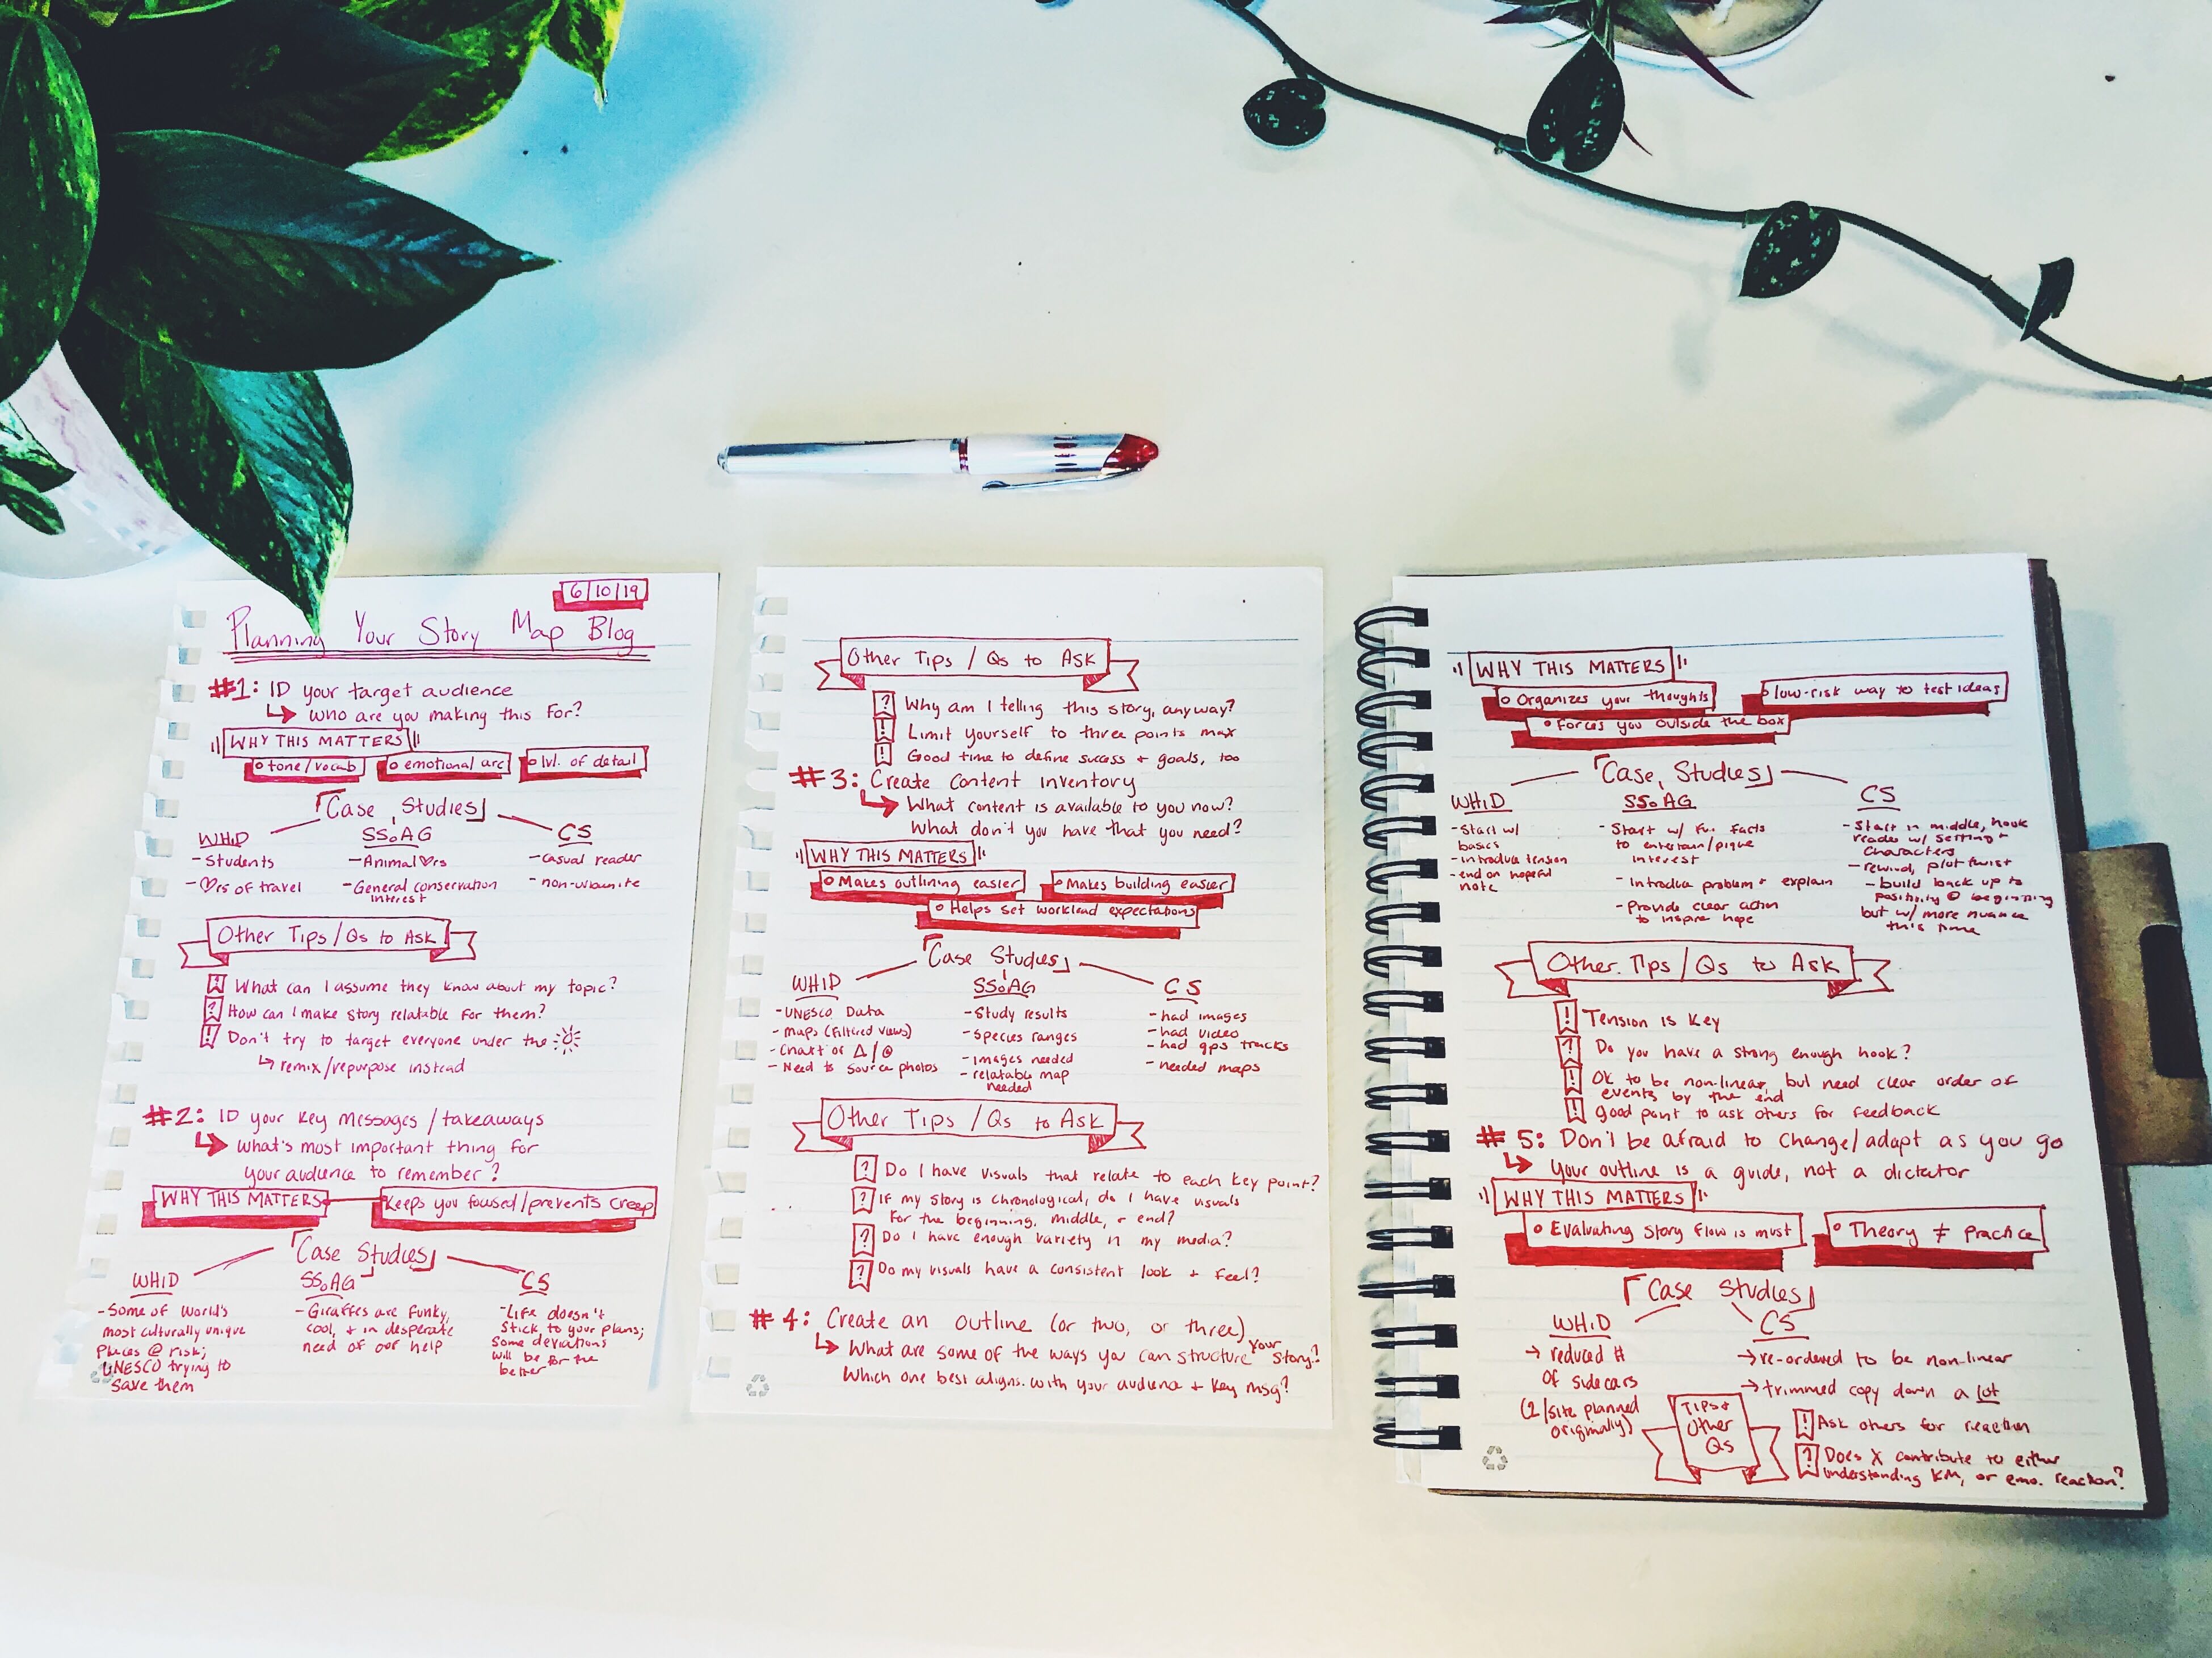 6/10/19
Planning Your Story Map Blog
#1: ID your target audience
↳ Who are you making this for?
WHY THIS MATTERS
• tone/vocab • emotional arc • lvl. of detail
Case Studies
WHiD SSoAG CS
- Students - Animal ♡rs - casual reader
- ♡rs of travel - General conservation interest - non-urbanite
Other Tips/Qs to Ask
? What can I assume they know about my topic?
? How can I make story relatable for them?
! Don't try to target everyone under the ☼
↳ remix/repurpose instead
#2: ID your key messages/takeaways
↳ What's most important thing for
your audience to remember?
WHY THIS MATTERS Keeps you focused/prevents creep
Case Studies
WHiD
- Some of World's
most culturally unique
places @ risk;
UNESCO trying to
save them
SSoAG
- Giraffes are funky,
cool, + in desperate
need of our help
CS
- Life doesn't
stick to your plans;
some deviations
will be for the
better
Other Tips / Qs to Ask
? Why am I telling this story, anyway?
! Limit yourself to three points max
! Good time to define success + goals, too
#3: Create content inventory
↳ What content is available to you now?
What don't you have that you need?
WHY THIS MATTERS
• Makes outlining easier • Makes building easier
• Helps set workload expectations
Case Studies
WHiD
- UNESCO Data
- Maps (filtered views)
- Chart of Δ/@
- Need to source photos
SSoAG
- Study results
- Species ranges
- images needed
- relatable map
needed
CS
- had images
- had video
- had gps tracks
- needed maps
Other Tips / Qs to Ask
? Do I have visuals that relate to each key point?
? If my story is chronological, do I have visuals
for the beginning, middle, + end?
? Do I have enough variety in my media?
? Do my visuals have a consistent look + feel?
#4: Create an outline (or two, or three)
↳ What are some of the ways you can structure your story?
Which one best aligns with your audience + key msg?
WHY THIS MATTERS
• Organizes your thoughts • low-risk way to test ideas
• Forces you outside the box
Case Studies
WHiD
- Start w/
basics
- introduce tension
- end on hopeful
note
SSoAG
- Start w/ fun facts
to entertain/pique
interest
- Introduce problem + explain
- Provide clear action
to inspire hope
CS
- Start in middle, hook
reader w/ setting +
characters
- rewind, plot twist
- build back up to
positivity @ beginning
but w/ more nuance
this time
Other Tips/Qs to Ask
! Tension is key
? Do you have a strong enough hook?
! Ok to be non-linear, but need clear order of
events by the end
! Good point to ask others for feedback
#5: Don't be afraid to change/adapt as you go
↳ Your outline is a guide, not a dictator
WHY THIS MATTERS
• Evaluating story flow is must • Theory ≠ practice
Case Studies
WHiD
→ reduced #
of sidecars
(2/site planned
originally)
CS
→ re-ordered to be non-linear
→ trimmed copy down a lot
Tips +
Other
Qs
! Ask others for reaction
? Does X contribute to either
understanding KM, or emo. reaction?